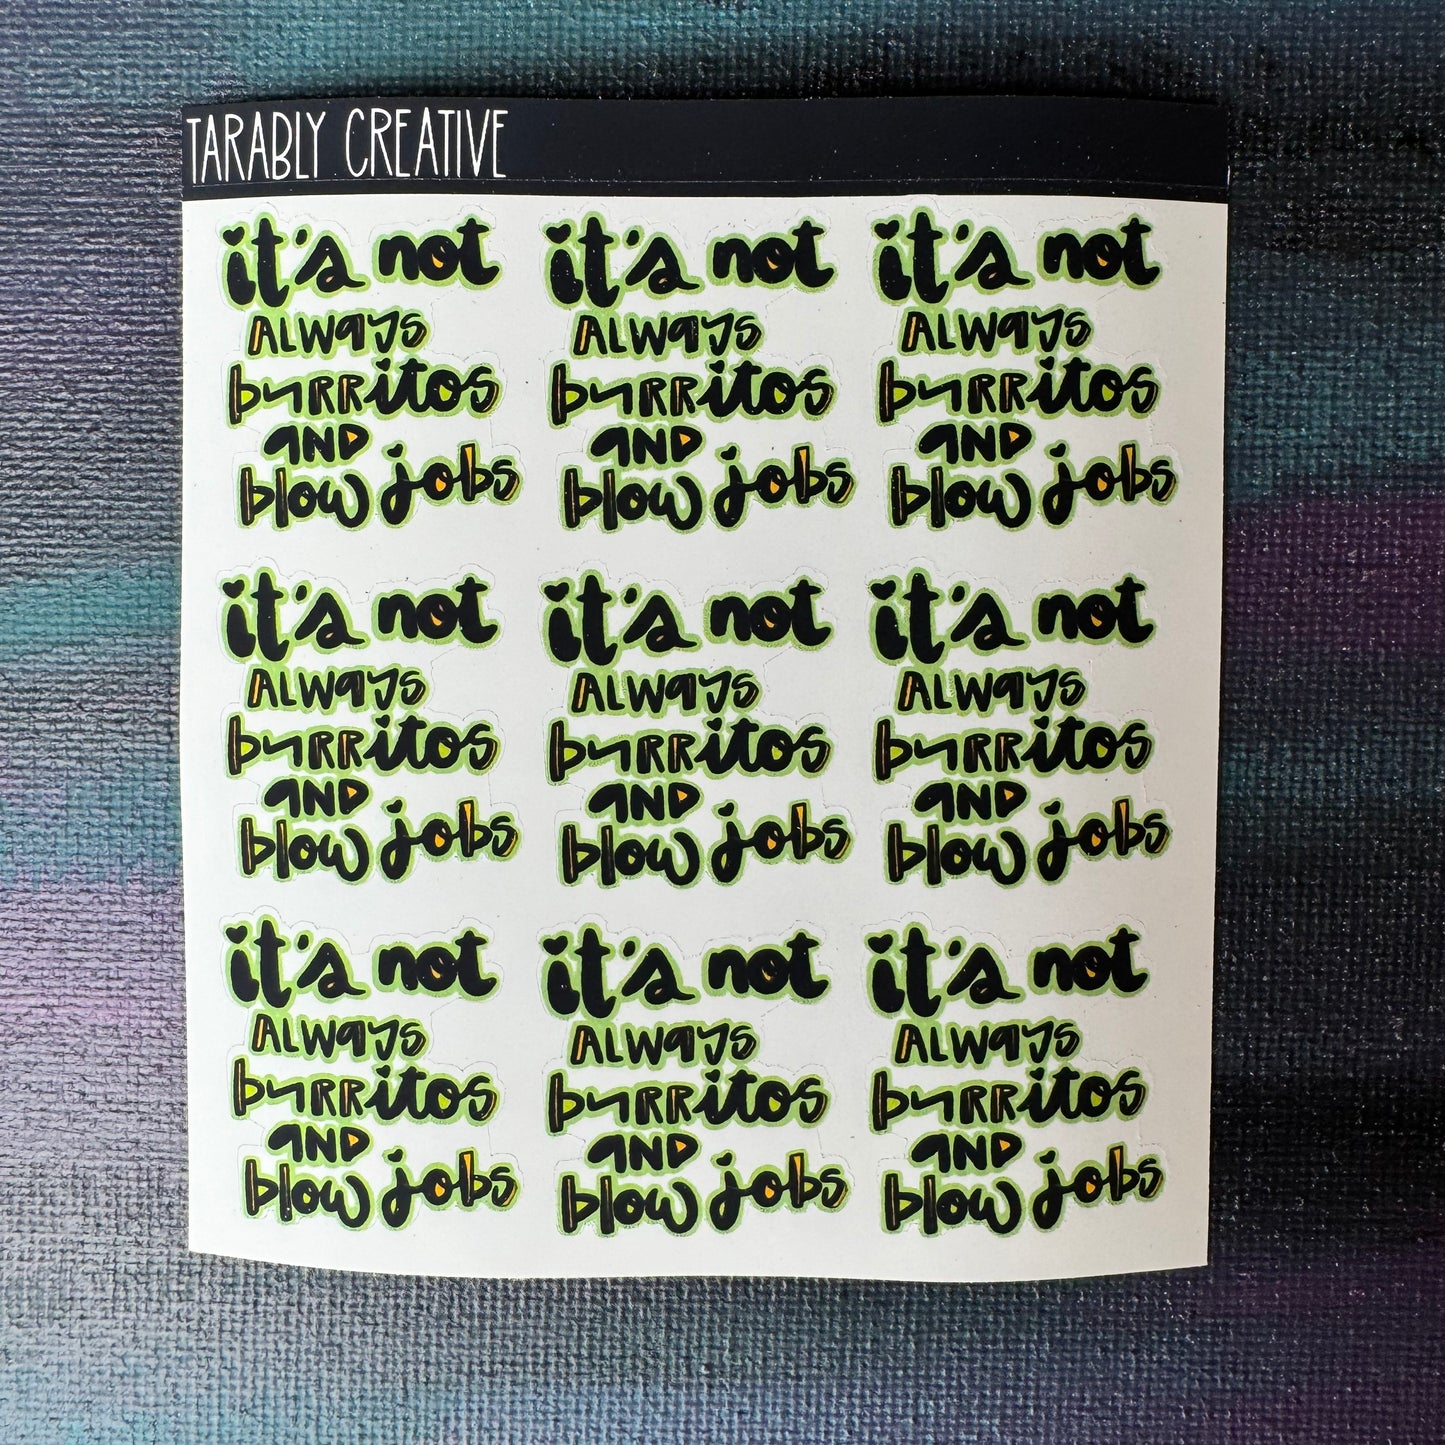 TARABLY CREATIVE
it's not it's not it's not
ALWAYS ALWAYS ALWAYS
burritos burritos burritos
AND AND AND
blow jobs blow jobs blow jobs
it's not it's not it's not
ALWAYS ALWAYS ALWAYS
burritos burritos burritos
AND AND AND
blow jobs blow jobs blow jobs
it's not it's not it's not
ALWAYS ALWAYS ALWAYS
burritos burritos burritos
AND AND AND
blow jobs blow jobs blow jobs